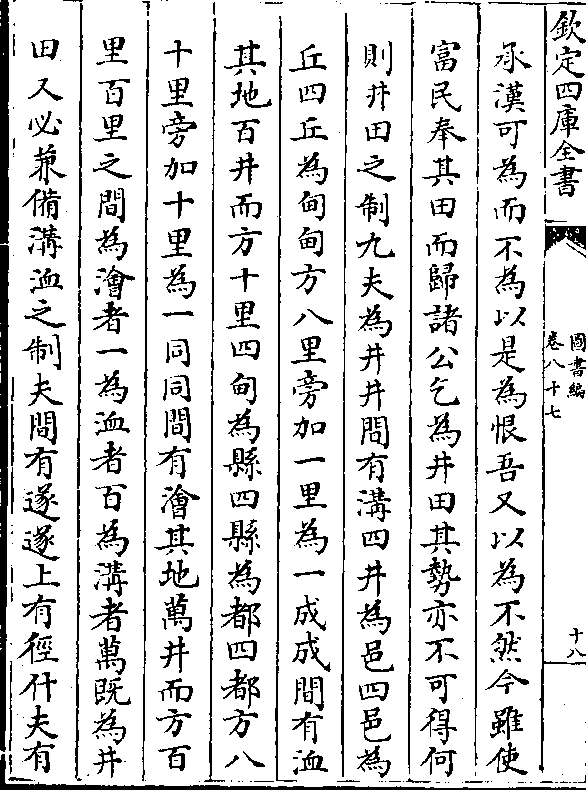 欽定四庫全書
圖書編
卷八十七
十八
承漢可為而不為以是為恨吾又以為不然今雖使
富民奉其田而歸諸公乞為井田其勢亦不可得何
則井田之制九夫為井井間有溝四井為邑四邑為
丘四丘為甸甸方八里旁加一里為一成成間有洫
其地百井而方十里四甸為縣四縣為都四都方八
十里旁加十里為一同同間有澮其地萬井而方百
里百里之間為澮者一為洫者百為溝者萬既為井
田又必兼備溝洫之制夫間有遂遂上有徑什夫有